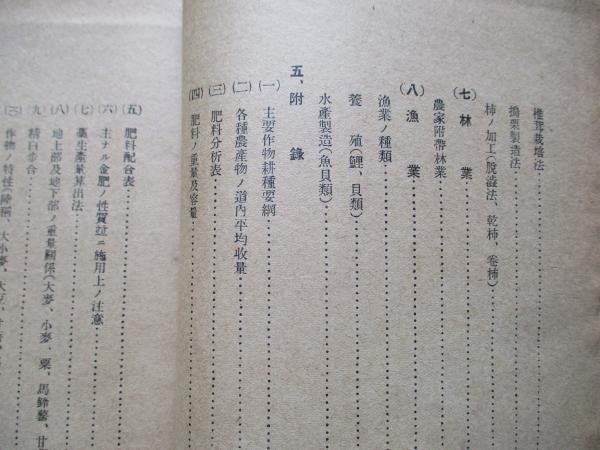 椎茸栽培法
搗栗製造法
柿ノ加工(脱澁法、乾柿、卷柿)
(七)林業
農家附帶林業
(八)漁業
漁業ノ種類
養殖(鯉、貝類)
水產製造(魚貝類)
五、附錄
(一)主要作物耕種要綱
(二)各種農產物ノ道內平均收量
(三)肥料分析表
(四)肥料ノ重量及容量
(五)肥料配合表
(六)主ナル金肥ノ性質並ニ施用上ノ注意
(七)藁生產量算出法
(八)地上部及地下部ノ重量關係(大麥、小麥、粟、馬鈴薯、甘
(九)精白步合
作物ノ特性
大小麥、大豆